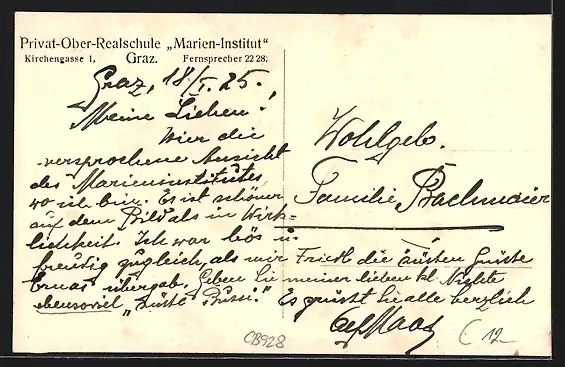 Privat-Ober-Realschule „Marien-Institut"
Kirchengasse 1, Graz. Fernsprecher 22 28.
Graz, 18/I. 25.
Meine Lieben!
Hier die
versprochene Ansicht
des Marieninstitutes,
wo ich bin. Es ist schöner
auf dem Bild als in Wirk=
lichkeit. Ich war bös u.
freudig zugleich, als mir Friedl die
übergab. Geben Sie meiner lieben kl. Nichte
ebensoviel Es grüßt Sie alle herzlich
Wohlgeb.
Familie Bachmaier
CB928
C 12